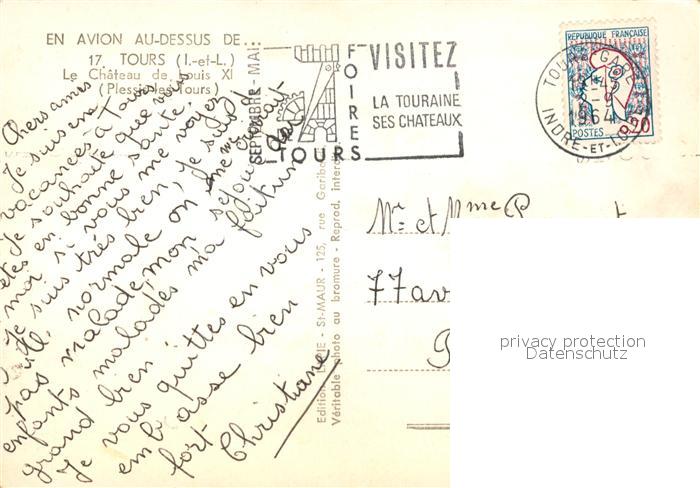 EN AVION AU-DESSUS DE...
17. TOURS (I.-et-L.)
Le Château de Louis XI
(Plessis-les-Tours)
SEPTEMBRE - MAI
FOIRES
TOURS
VISITEZ
LA TOURAINE
SES CHATEAUX
RÉPUBLIQUE FRANÇAISE
POSTES
TOURS GARE
1964
INDRE-ET-LOIRE
Chers amis
Je suis en
vacances à Tours
Je souhaite que vous
êtes en bonne santé.
moi si vous me voyez
Je suis très bien, je suis
normale on
pas malade mon séjour
enfants malades ma
grand bien
Je vous quittes en vous
embrasse bien
fort
Christiane
St-MAUR - 125, rue Garibaldi
Véritable photo au bromure - Reprod. interd.
Mr et Mme
77 av
privacy protection
Datenschutz